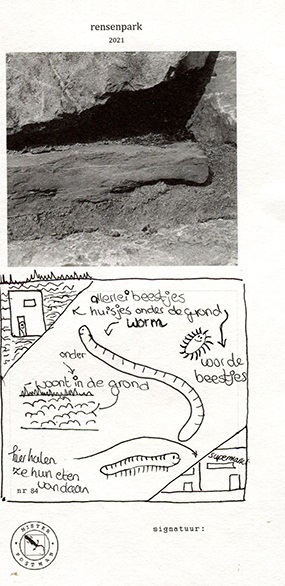 rensenpark
2021
allerlei beestjes
huisjes onder de grond
worm
voor de
beestjes
onder
woont in de grond
hier halen
ze hun eten
vandaan
supermarkt
nr 84
MISTER
POSTMAN
signatuur: